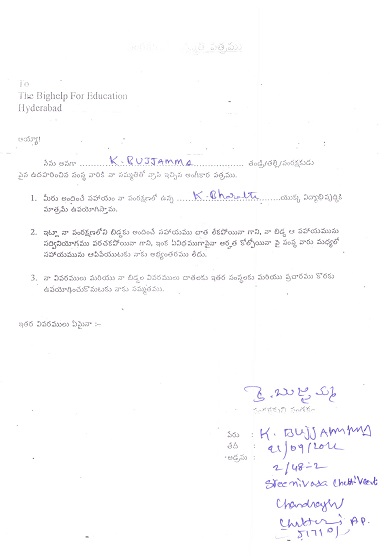 పత్రము
To
The Bighelp For Education
Hyderabad
అయ్యా!
నేను అనగా K. BUJJAMMA తండ్రి/తల్లి/సంరక్షకుడు
పైన ఉదహరించిన సంస్థ వారికి నా సమ్మతితో వ్రాసి ఇచ్చిన అంగీకార పత్రము.
1. మీరు అందించే సహాయం నా సంరక్షణలో ఉన్న K. Bharathi యొక్క విద్యాభివృద్ధికి
మాత్రమే ఉపయోగిస్తాను.
2. ఇట్లూ నా సంరక్షణలోని బిడ్డకు అందించే సహాయము దాత లేకపోయినా గాని, నా బిడ్డ ఆ సహాయమును
సద్వినియోగము పరచకపోయినా గాని, ఇంక ఏవిధముగానైనా అర్హత కోల్పోయినా పై సంస్థ వారు మధ్యలో
సహాయమును ఆపివేయుటకు నాకు అభ్యంతరము లేదు.
3. నా వివరములు మరియు నా బిడ్డల వివరములు దాతలకు ఇతర సంస్థలకు మరియు ప్రచారము కొరకు
ఉపయోగించుకొనుటకు నాకు సమ్మతము.
ఇతర వివరములు ఏమైనా :-
కె. బుజ్జమ్మ
పేరు : K. BUJJAMMA
తేది : 21/09/2022
అడ్రసు : 2/48-2
Sreenivasa
Chandragiri
A.P.
517101